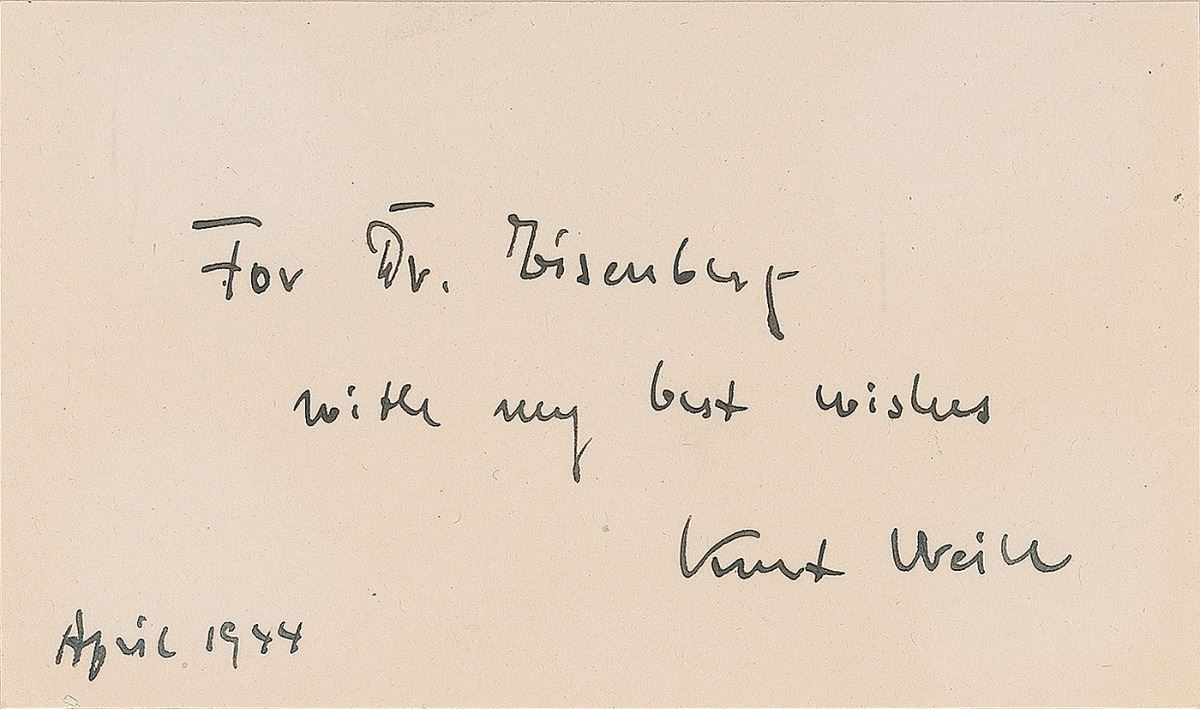 For Dr. Eisenberg
with my best wishes
Kurt Weill
April 1944